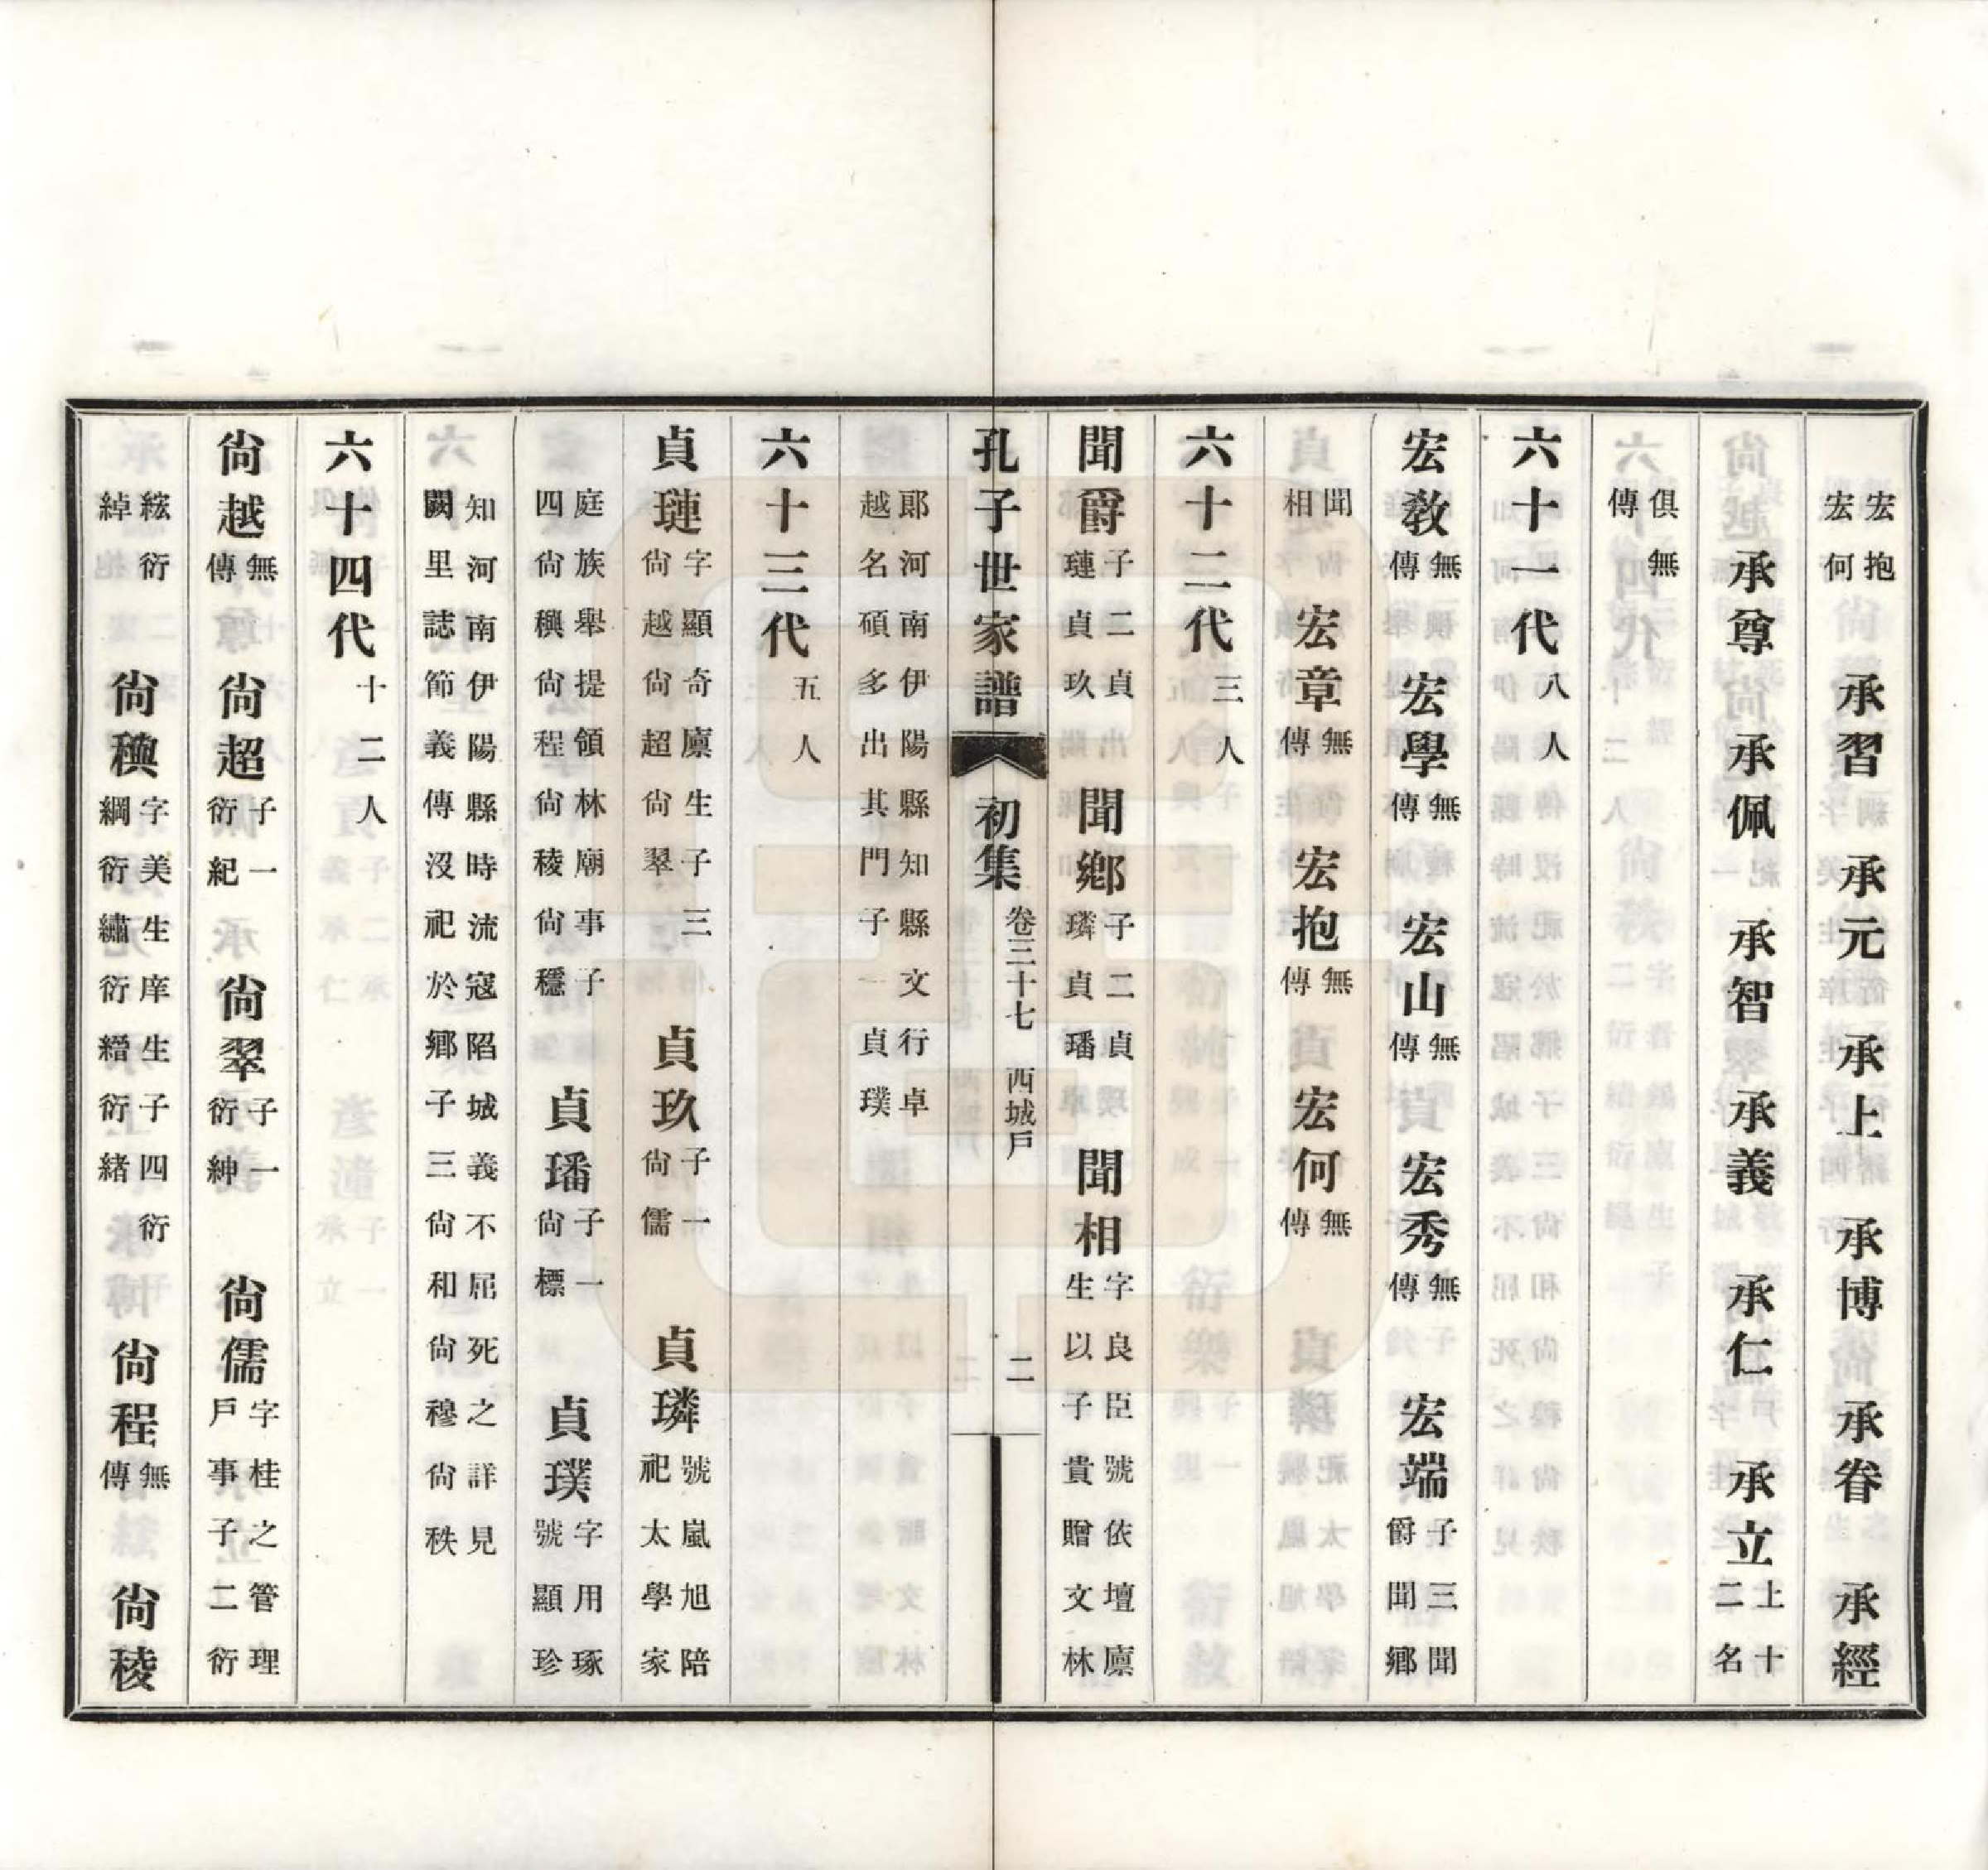 宏抱宏何　承習　承元　承上　承博　承眷　承經
承尊　承佩　承智　承義　承仁　承立上十二名
俱無傳
六十一代八人
宏教無傳　宏學無傳　宏山無傳　宏秀無傳　宏端子三聞爵聞鄉
聞相　宏章無傳　宏抱無傳　宏何無傳
六十二代三人
聞爵子二貞璉貞玖　聞鄉子二貞璘貞璠　聞相字良臣號依壇廩生以子貴贈文林
孔子世家譜　初集　卷三十七　西城戶　二
郎河南伊陽縣知縣文行卓越名碩多出其門子一貞璞
六十三代五人
貞璉字顯奇廩生子三尙越尙超尙翠　貞玖子一尙儒　貞璘號嵐旭陪祀太學家
庭族舉提領林廟事子四尙穓尙程尙稜尙穩　貞璠子一尙標　貞璞字用琢號顯珍
知河南伊陽縣時流寇陷城義不屈死之詳見闕里誌節義傳沒祀於鄉子三尙和尙穆尙秩
六十四代十二人
尙越無傳　尙超子一衍紀　尙翠子一衍紳　尙儒字桂之管理戶事子二衍
絃衍綽　尙穓字美生庠生子四衍綱衍繡衍繒衍緒　尙程無傳　尙稜